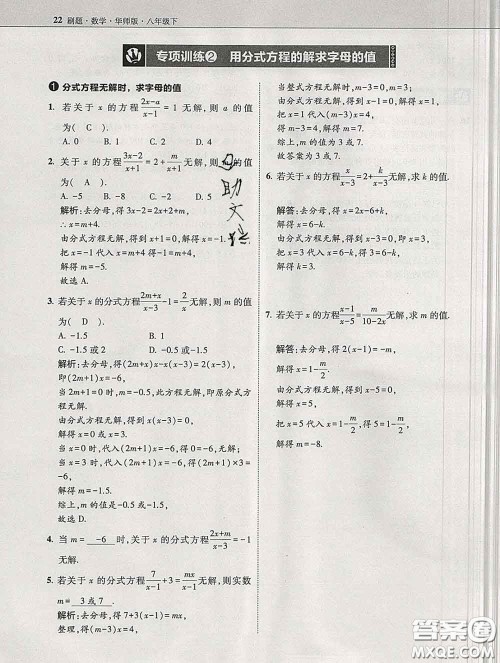 22 刷题·数学·华师版·八年级下
专项训练② 用分式方程的解求字母的值
❶ 分式方程无解时，求字母的值
1. 若关于 x 的方程(2x-a)/(x-1)=1 无解，则 a 的值
为( C ).
A. 0 B. 1 C. 2 D. 4
2. 关于 x 的方程(3x-2)/(x+1)=2+m/(x+1)无解，则 的值
为( A ).
A. -5 B. -8 C. -2 D. 5
解析:去分母,得3x-2=2x+2+m,
∴x=4+m.
由分式方程无解,得到x+1=0,解得x=-1.
把x=-1代入x=4+m中,得4+m=-1,
解得m=-5.
故选A.
3. 若关于 x 的分式方程(2m+x)/(x-3)-1=2/x无解，则 m 的值
为( D ).
A. -1.5 B. 1
C. -1.5或2 D. -0.5或-1.5
解析:去分母,得(2m+x)x-x(x-3)=2(x-3),
即(2m+1)x=-6,
当2m+1=0,即m=-0.5,此方程无解,即原分式方
程无解.
由分式方程无解,得到x(x-3)=0,
解得x=0或x=3.
当x=0时,代入(2m+1)x=-6,得(2m+1)×0=-6,
无解.
当x=3时,代入(2m+1)x=-6,得(2m+1)×3=
-6,
解得m=-1.5.
综上,m的值为-0.5或-1.5.
故选D.
4. 当 m= -6 时，关于 x 的分式方程(2x+m)/(x-3)=-1
无解.
5. 若关于 x 的分式方程7/(x-1)+3=mx/(x-1)无解，则实数
m= 3或7 .
解析:去分母,得7+3(x-1)=mx,
整理,得(m-3)x=4,
当整式方程无解时,m-3=0,m=3;
当分式方程无解时,x-1=0,x=1,
把x=1代入(m-3)x=4,
得m-3=4,解得m=7.
综上,m的值为3或7.
故答案为3或7.
6. 若关于 x 的方程x/(x-3)=2+k/(x-3)无解，求 k 的值.
解答:去分母,得x=2x-6+k,
解得x=6-k.
由分式方程无解,得到x-3=0,即x=3,
把x=3代入x=6-k,得3=6-k,
解得k=3.
7. 若关于 x 的方程(x-1)/(x-5)=m/(10-2x)无解，求 m 的值.
解答:去分母,得2(x-1)=-m,
解得x=1-m/2.
由分式方程无解,得到x-5=0,
解得x=5.
把x=5代入x=1-m/2,得5=1-m/2,
解得m=-8.
答案圈